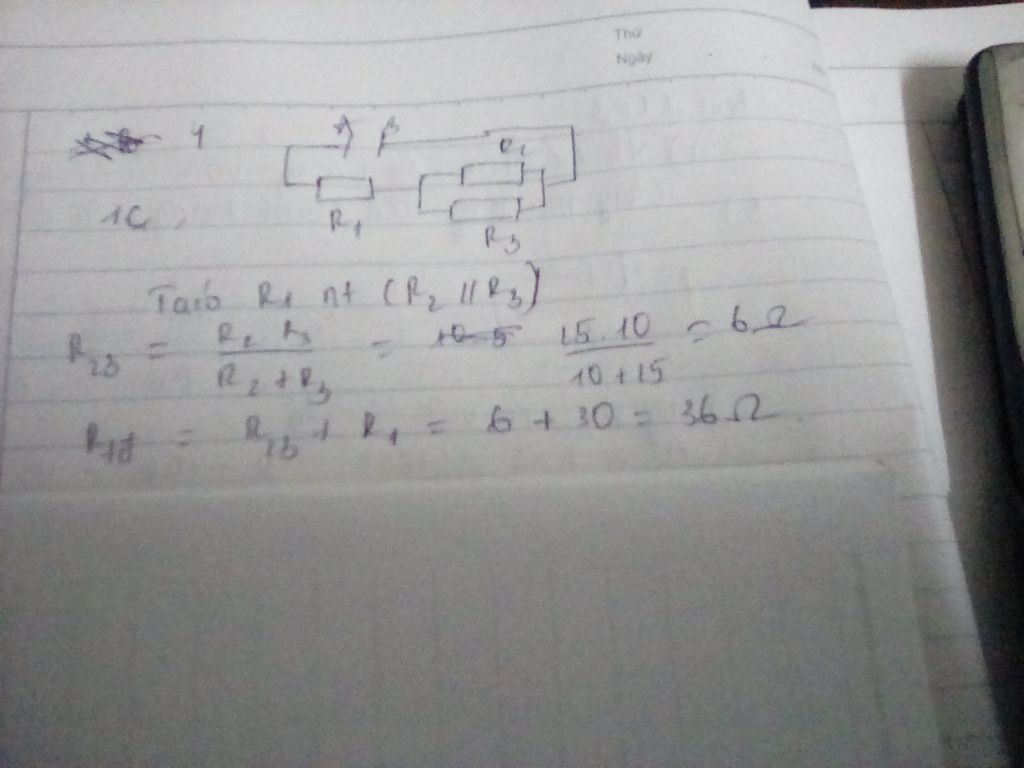 Thứ
Ngày
1
A B
R2
1C,
R1
R3
Ta có R1 nt (R2 // R3)
R23 = R2 R3 / R2 + R3 = 15.10 / 10+15 = 6Ω
Rtđ = R23 + R1 = 6 + 30 = 36Ω